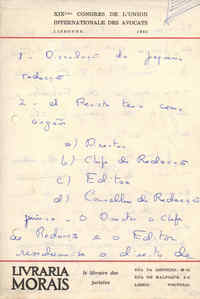 XIXème CONGRES DE L'UNION
INTERNATIONALE DES AVOCATS
LISBONNE
1 - Direcção da pequena
redacção
2 - A Revista tem como
órgãos
a) Director
b) Chefe de Redacção
c) Editor
d) Conselho de Redacção
O Director o Chefe
de Redacção e o Editor
o direito de
LIVRARIA
MORAIS
la librairie des
juristes
RUA DA ASSUNÇÃO, 49-51
LISBOA PORTUGAL